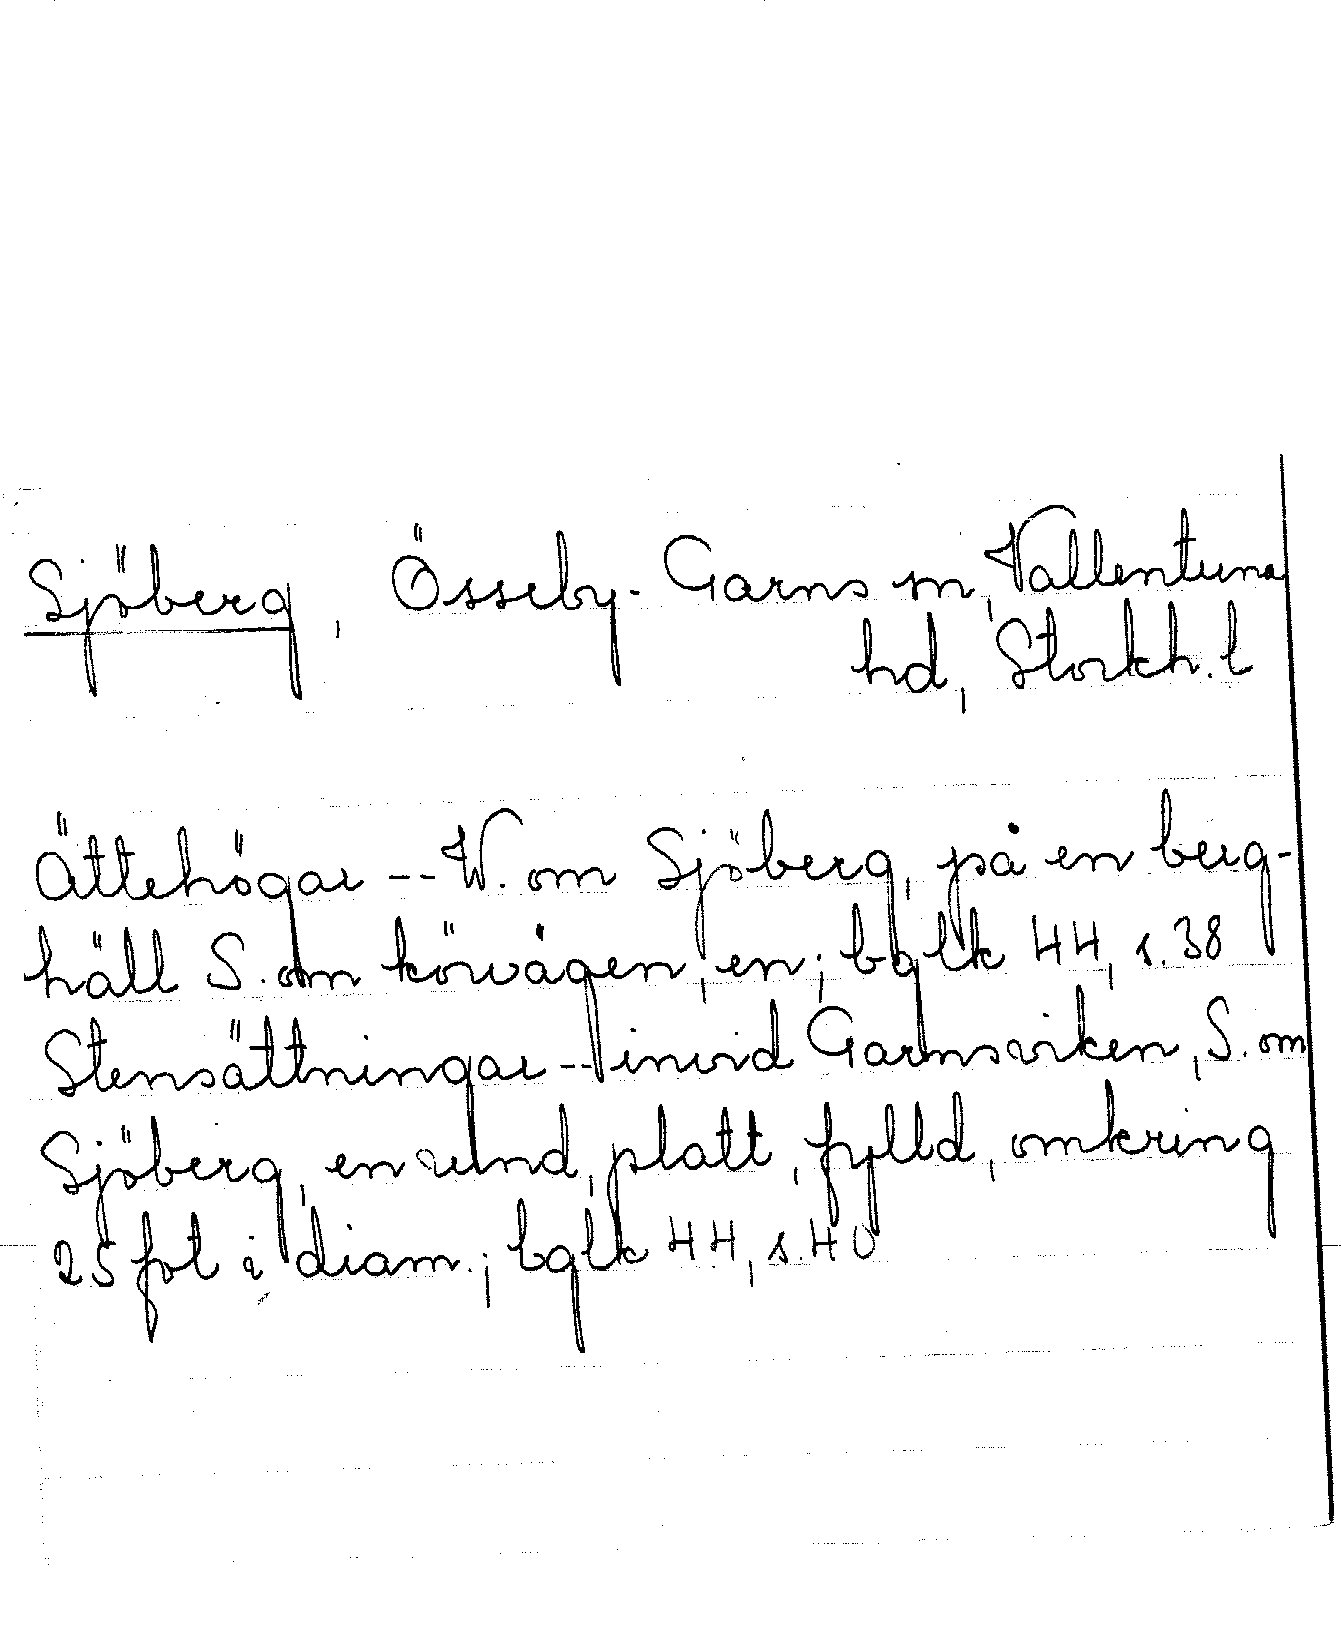 Sjöberg, Össeby-Garns sn, Vallentuna
hd, Stockh. l
Ättehögar -- W. om Sjöberg, på en berg-
häll S. om körvägen, en; bglk 44, s. 38
Stensättningar -- invid Garnsviken, S. om
Sjöberg, en rund, platt, fylld, omkring
25 fot i diam.; bglk 44, s. 40